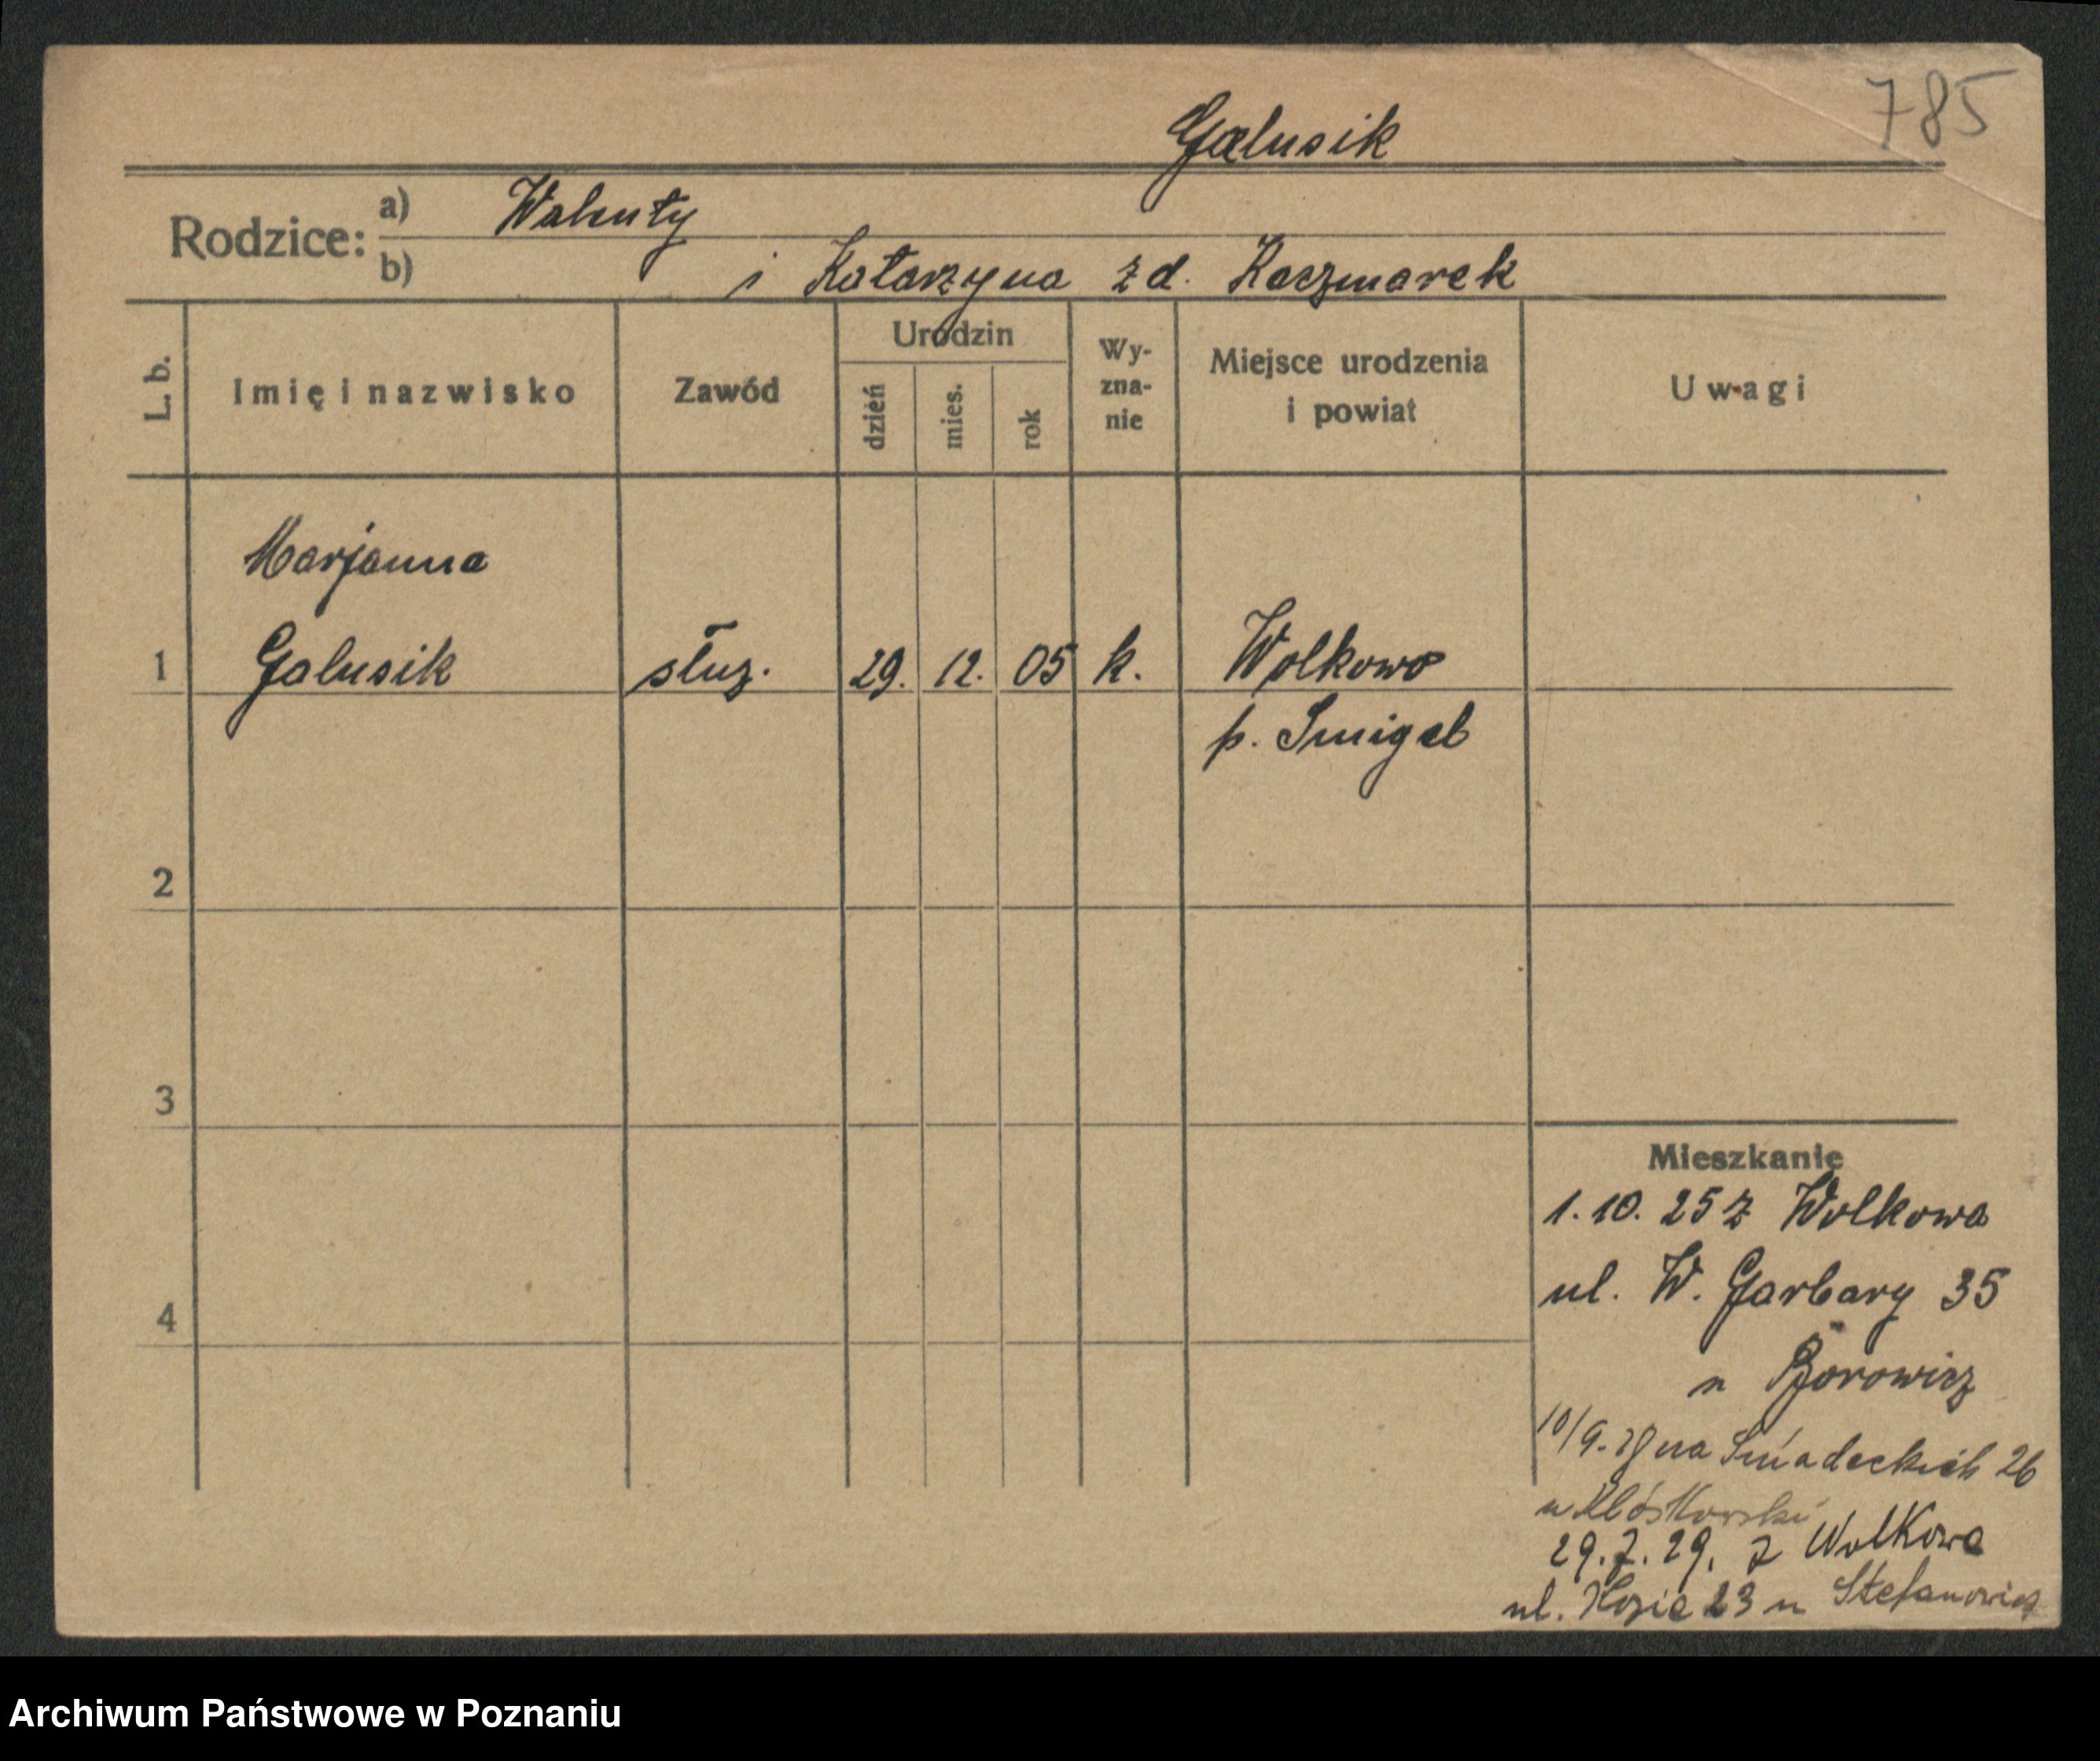 785
Galusik
Rodzice: a) Walenty
b) i Katarzyna zd. Kaczmarek
L. b. Imię i nazwisko Zawód Urodzin dzień mies. rok Wy-zna-nie Miejsce urodzenia i powiat Uwagi
Marjanna
1 Galusik służ. 29. 12. 05 k. Wolkowo
p. Smigel
2
3
4
Mieszkanie
1.10.25 z Wolkowa
ul. W. Garbary 35
u Borowicz
10/9. na Śniadeckich 26
u
29.7.29. z Wolkowa
ul. Kozia 23 u Stefanowicz
Archiwum Państwowe w Poznaniu